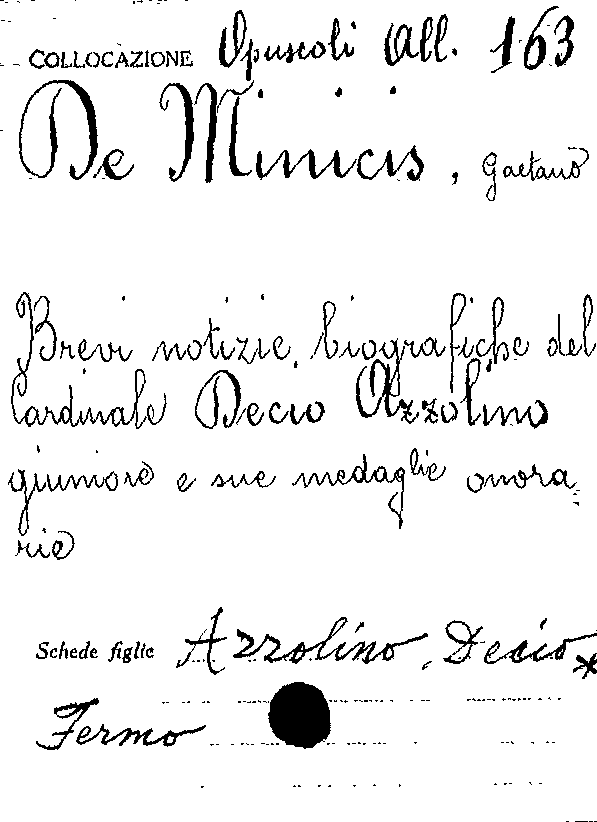 COLLOCAZIONE Opuscoli All. 163
De Minicis, Gaetano
Brevi notizie biografiche del
Cardinale Decio Azzolino
giuniore e sue medaglie onora=
rie
Schede figlie Azzolino, Decio *
Fermo